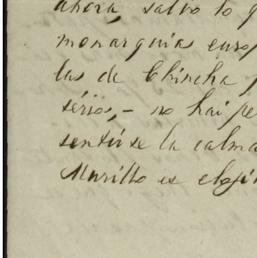 ahora, salvo lo q
monarquias euro
las de Chincha
sérios,- no hai pe
sentirse la calma
Murillo es eloji